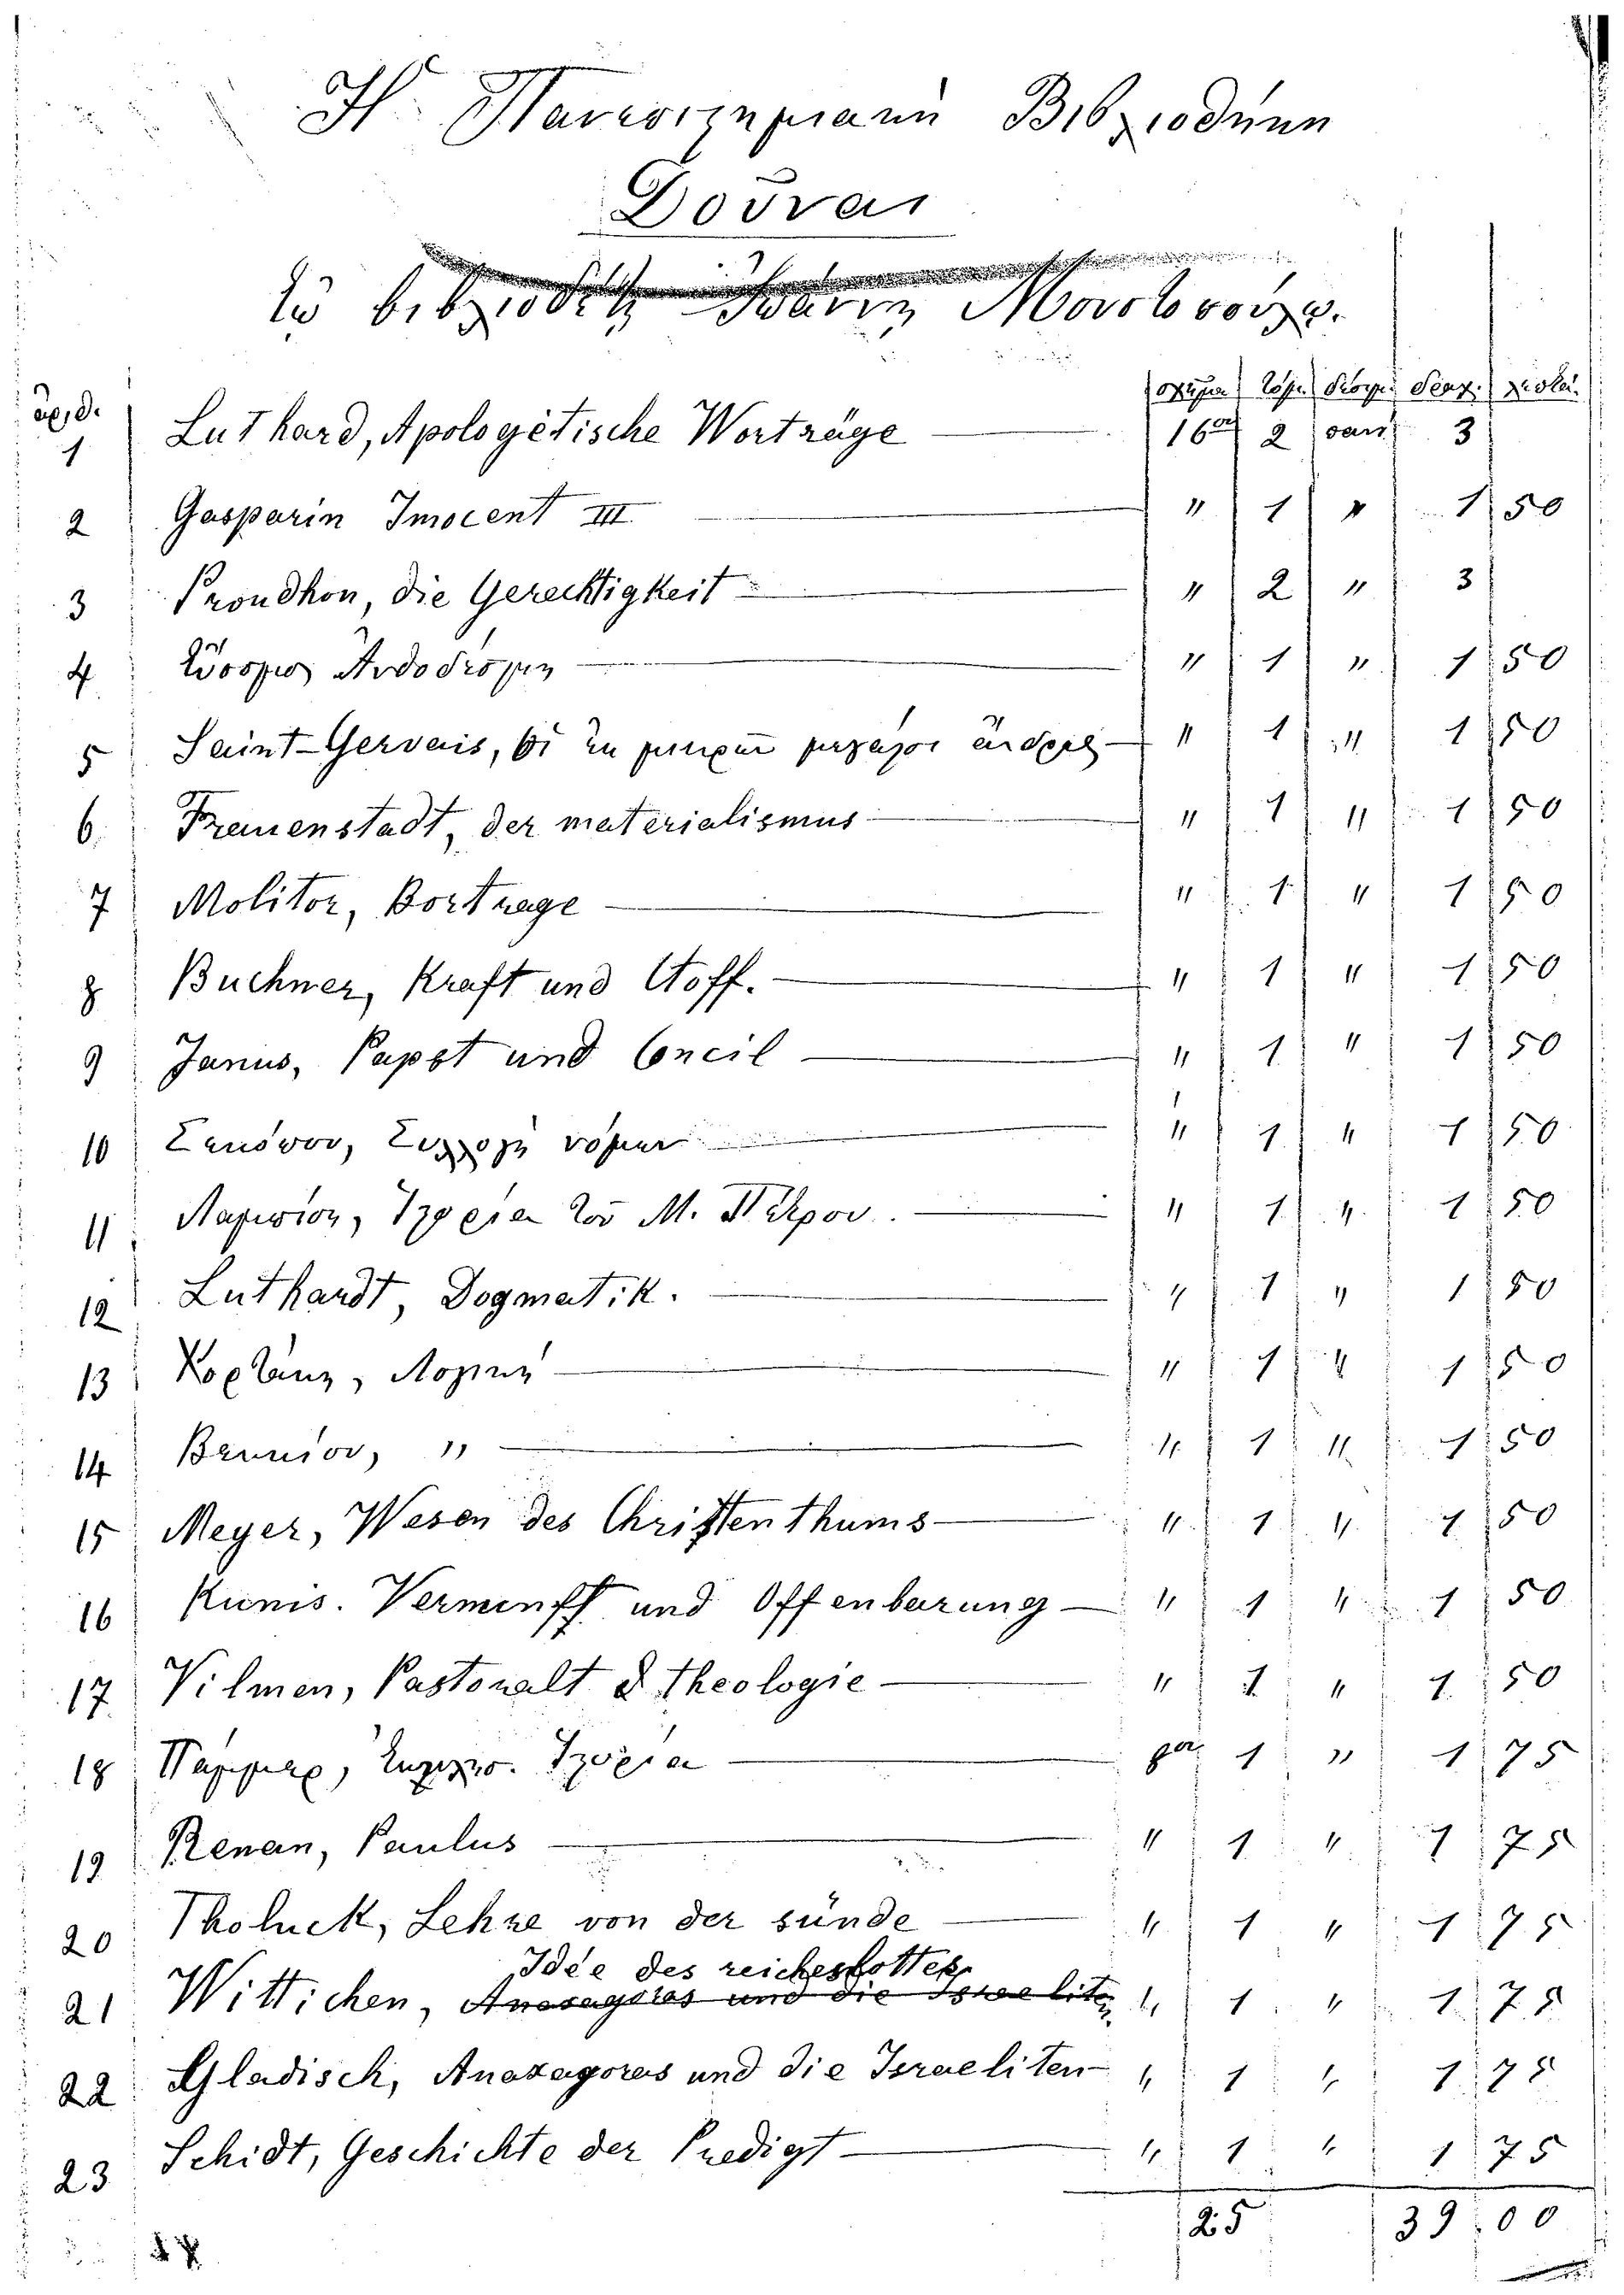 Ἡ Πανεπιστημιακὴ Βιβλιοθήκη
Δοῦναι
τῷ βιβλιοδέτῃ Ἰωάννῃ
ἀριθ. σχῆμα τόμ. δραχ. λεπτ.
1 Luthard, Apologetische Worträge 16ον 2 3
2 Gasparin Inocent III " 1 " 1 50
3 Proudhon, die Gerechtigkeit " 2 " 3
4 " 1 " 1 50
5 Saint-Gervais, Οἱ ἐκ μικρῶν μεγάλοι ἄνδρες " 1 " 1 50
6 Frauenstadt, der materialismus " 1 " 1 50
7 Molitor, Bortrage " 1 " 1 50
8 Buchner, Kraft und Stoff. " 1 " 1 50
9 Janus, Papst und Concil " 1 " 1 50
10 Συλλογὴ νόμων " 1 " 1 50
11 τοῦ Μ. Πέτρου " 1 " 1 50
12 Luthardt, Dogmatik. " 1 " 1 50
13 Λογικὴ " 1 " 1 50
14 " " 1 " 1 50
15 Meyer, Wesen des Christenthums " 1 " 1 50
16 Kunis. Vernunft und Offenbarung " 1 " 1 50
17 Vilmen, Pastoralt & theologie " 1 " 1 50
18 8ον 1 " 1 75
19 Renan, Paulus " 1 " 1 75
20 Tholuck, Lehre von der sünde " 1 " 1 75
Idee des reiches Gottes
21 Wittichen, Anaxagoras und die Israeliten " 1 " 1 75
22 Gladisch, Anaxagoras und die Israeliten " 1 " 1 75
23 Schidt, Geschichte der Predigt " 1 " 1 75
25 39 00